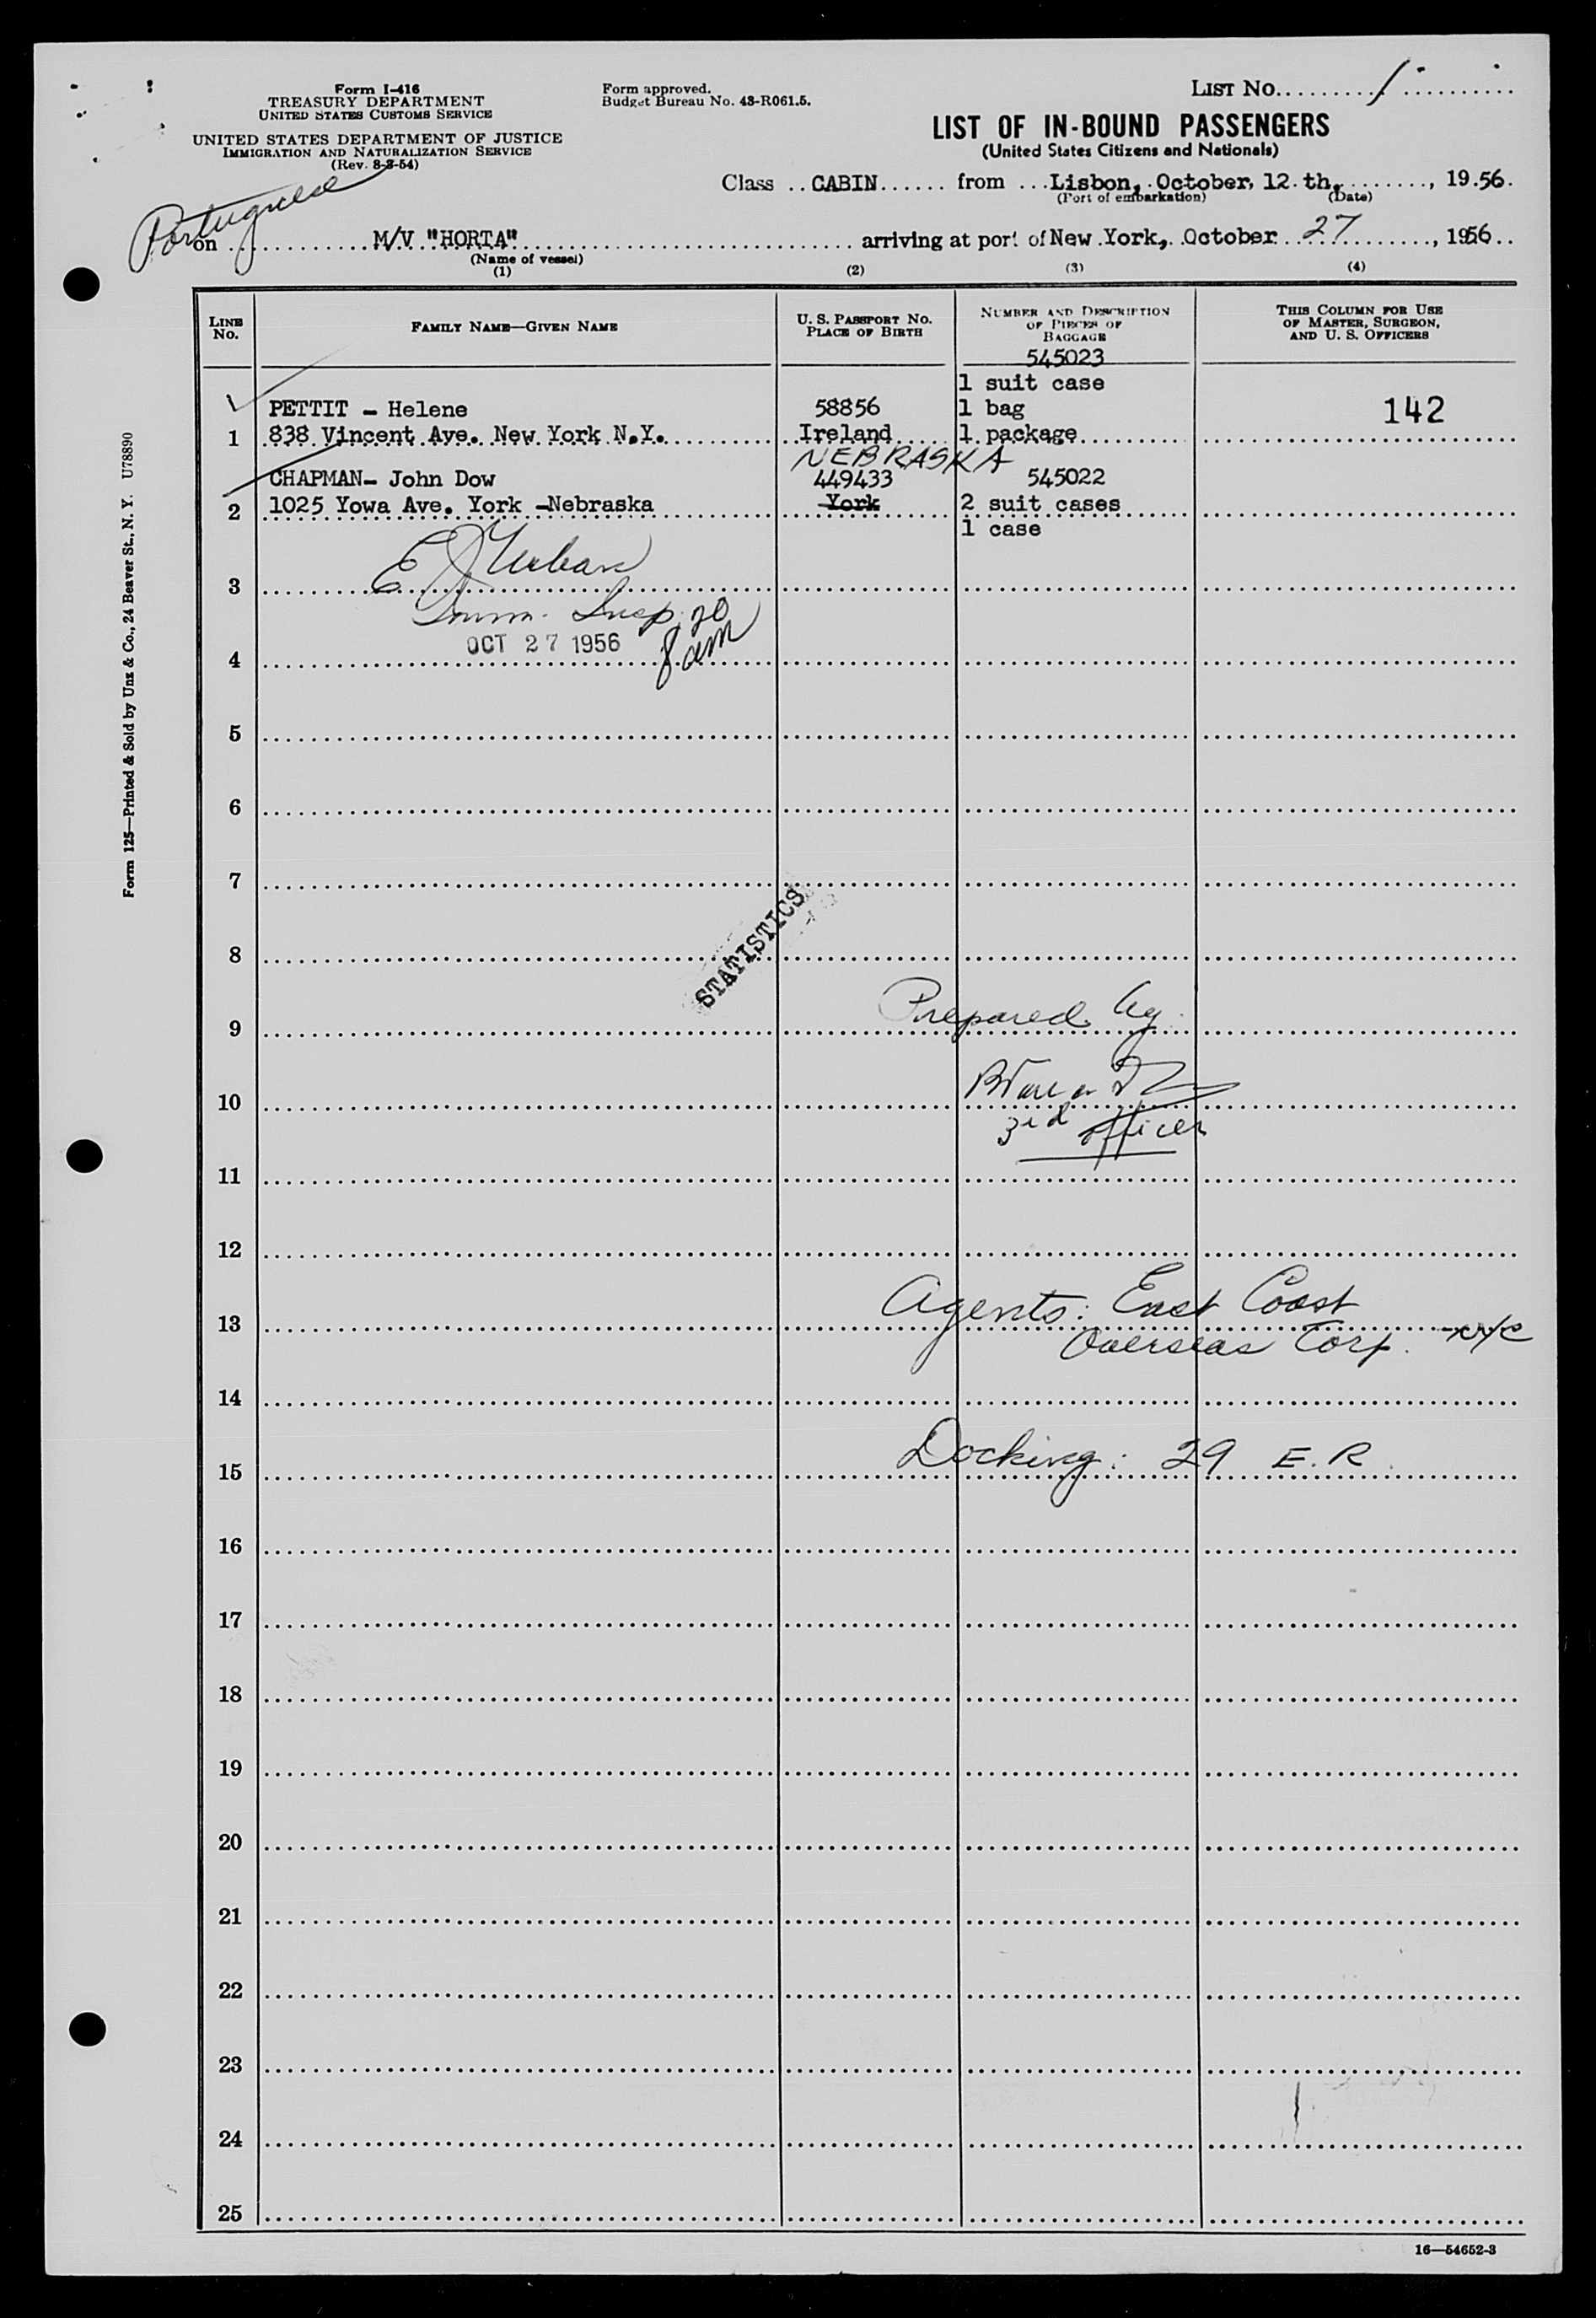 Form I-416
TREASURY DEPARTMENT
UNITED STATES CUSTOMS SERVICE
UNITED STATES DEPARTMENT OF JUSTICE
IMMIGRATION AND NATURALIZATION SERVICE
(Rev. 8-8-54)
Form approved.
Budget Bureau No. 43-R061.5.
LIST No. 1
LIST OF IN-BOUND PASSENGERS
(United States Citizens and Nationals)
Class CABIN from Lisbon, October, 12 th, , 19 56.
(Port of embarkation) (Date)
Portuguese
on M/V "HORTA" arriving at port of New York, October 27, 1956
(Name of vessel)
(1) (2) (3) (4)
LINE No.
FAMILY NAME—GIVEN NAME
U. S. PASSPORT No.
PLACE OF BIRTH
NUMBER AND DESCRIPTION
OF PIECES OF
BAGGAGE
THIS COLUMN FOR USE
OF MASTER, SURGEON,
AND U. S. OFFICERS
545023
1 suit case
PETTIT - Helene 58856 1 bag 142
1 838 Vincent Ave. New York N.Y. Ireland 1 package
NEBRASKA
CHAPMAN- John Dow 449433 545022
2 1025 Yowa Ave. York -Nebraska York 2 suit cases
1 case
3
Imm. Insp.
OCT 27 1956
8 20 am
4
5
6
7
8
STATISTICS
Prepared by
9
10
3rd officer
11
12
Agents: East Coast
13
Overseas Corp. - NYC
14
Docking: 29 E. R.
15
16
17
18
19
20
21
22
23
24
25
16—54652-3
Form 125—Printed & Sold by Unz & Co., 24 Beaver St., N. Y. U78890